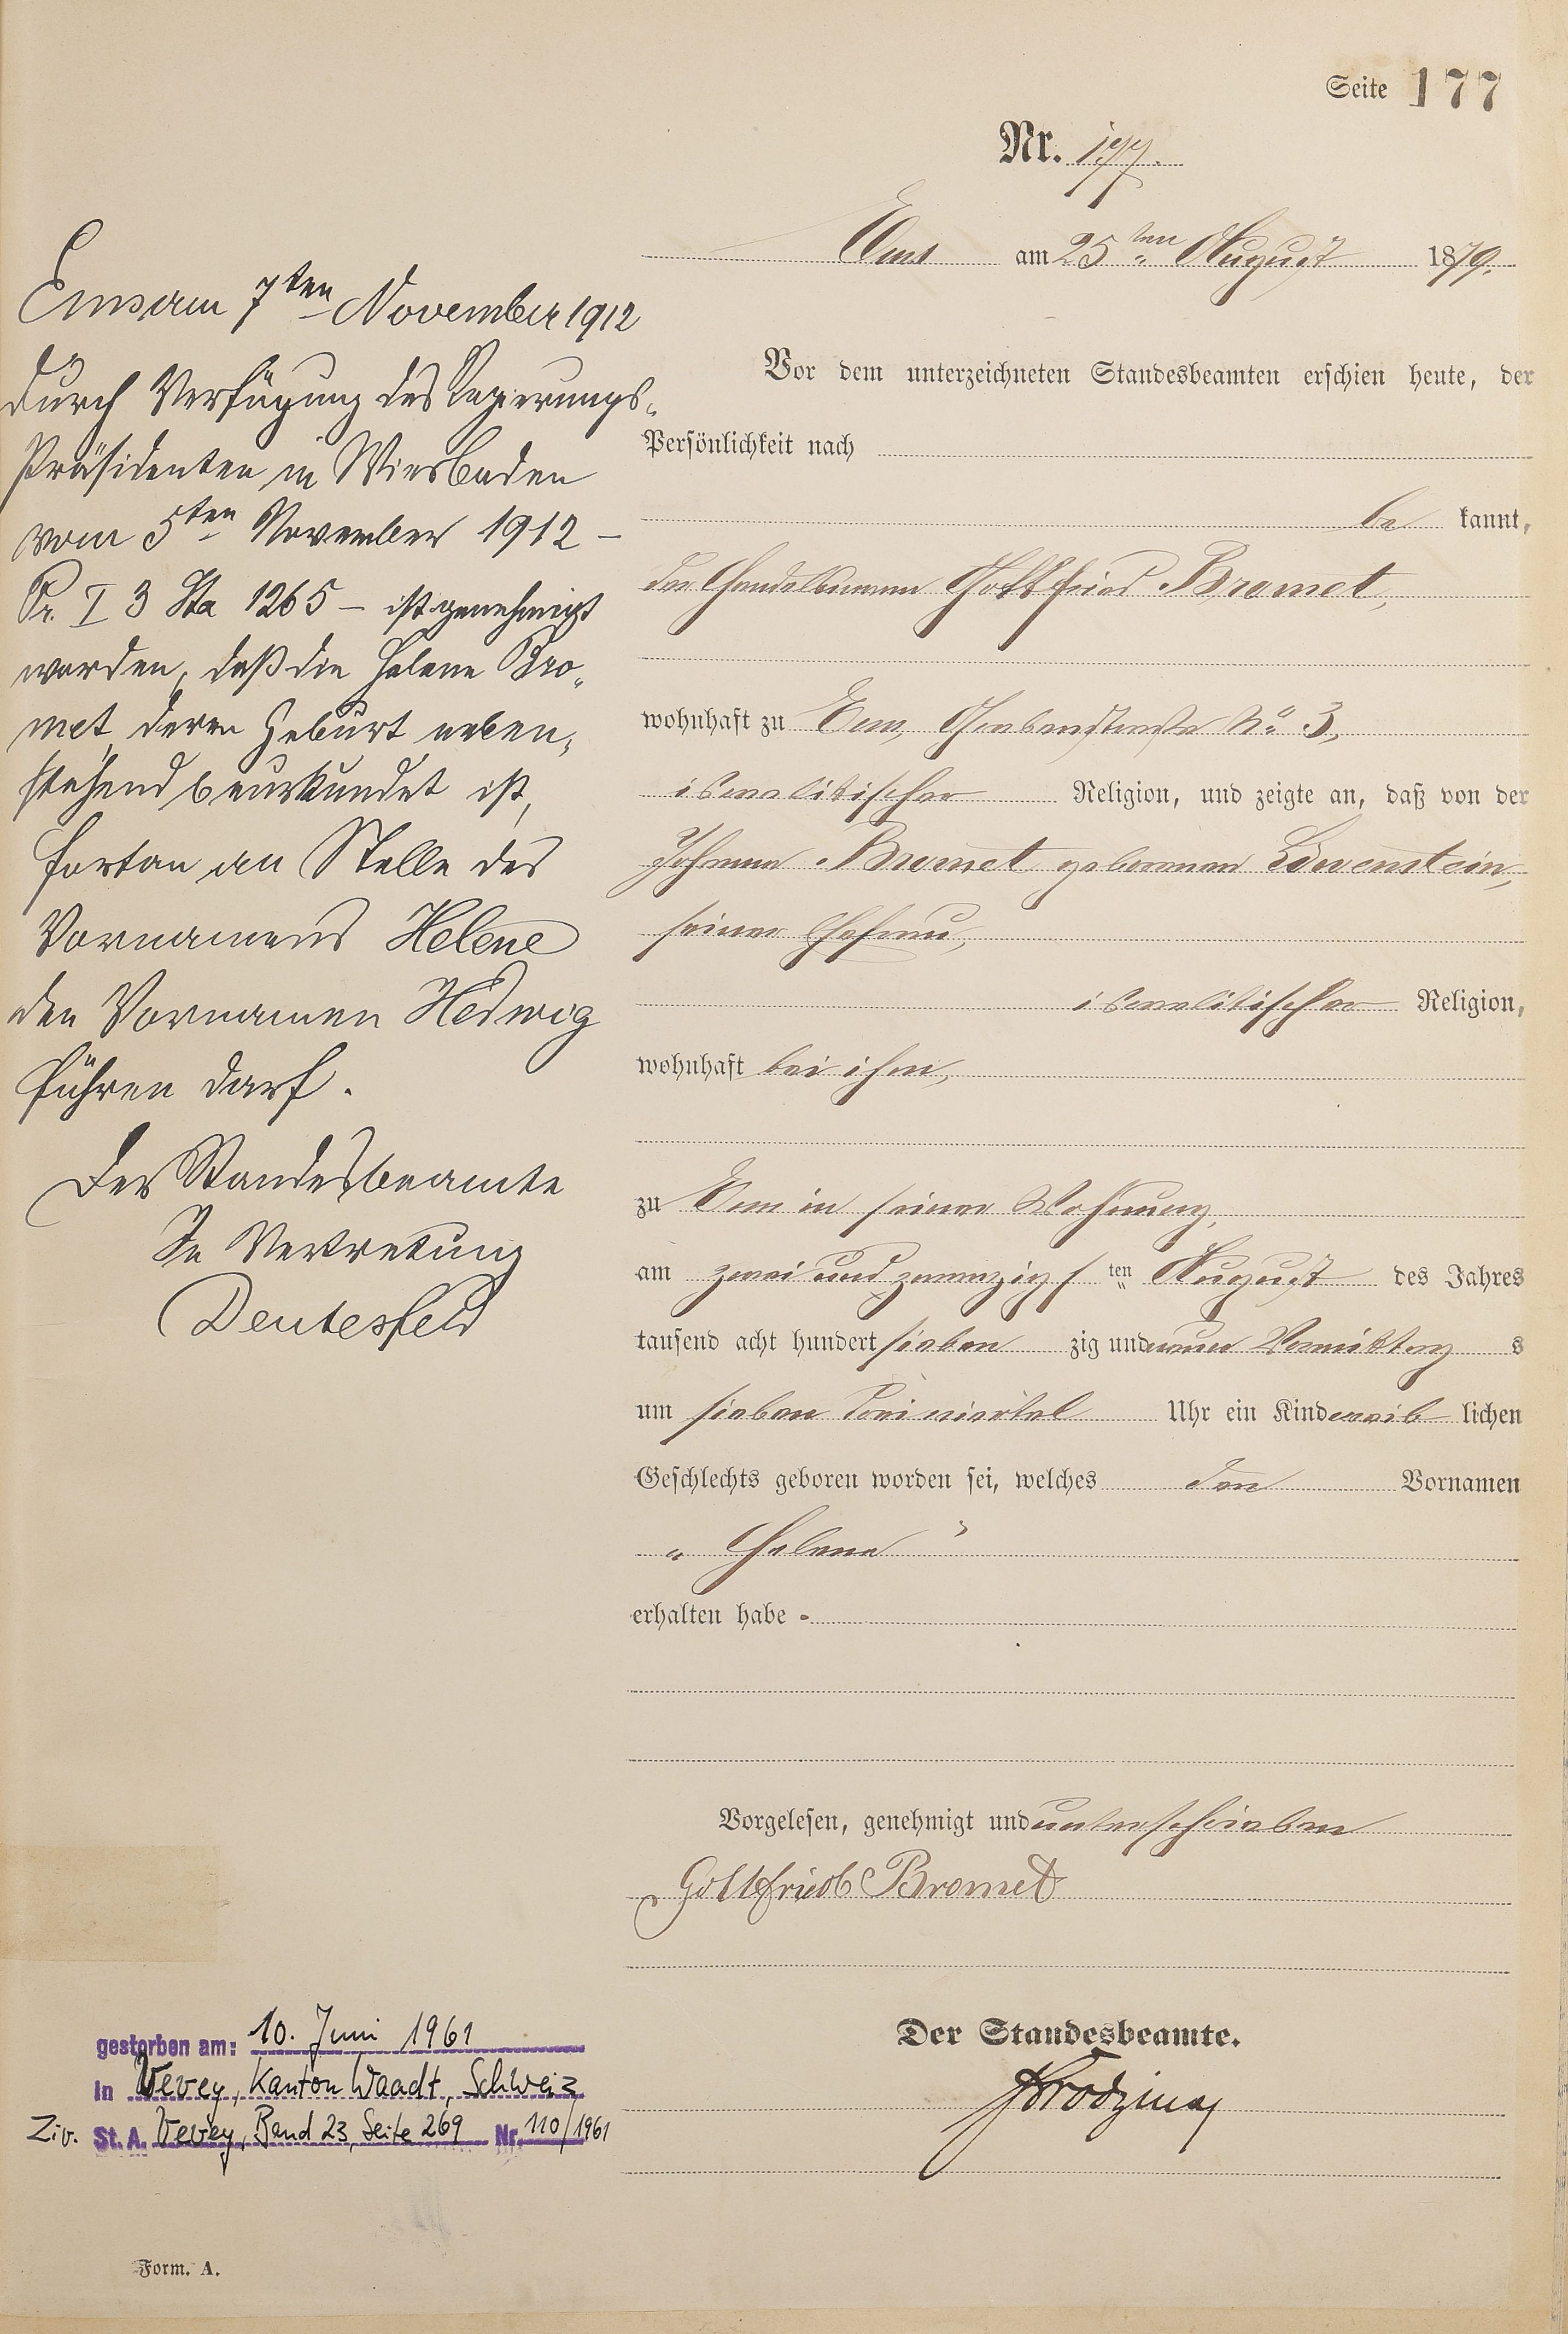 Seite 177
Nr. 177.
Ems am 25ten August 1879.
Vor dem unterzeichneten Standesbeamten erschien heute, der
Persönlichkeit nach
be kannt,
der Handelsmann Gottfried Bromet,
wohnhaft zu Ems, No 3,
israelitischer Religion, und zeigte an, daß von der
Johanna Bromet geborenen Löwenstein,
seiner Ehefrau,
israelitischer Religion,
wohnhaft bei ihm,
zu Ems in seiner Wohnung,
am zwei und zwanzigsten August des Jahres
tausend acht hundert sieben zig und neun Vormittag s
um sieben dreiviertel Uhr ein Kind weib lichen
Geschlechts geboren worden sei, welches den Vornamen
„Helene"
erhalten habe.
Vorgelesen, genehmigt und unterschrieben
Gottfried Bromet
Der Standesbeamte.
Ems am 7ten November 1912
Durch Verfügung des Regierungs-
Präsidenten in Wiesbaden
vom 5ten November 1912 –
Pr. I 3 Sta 1265 – ist genehmigt
worden, daß die Helene Bro-
met deren Geburt neben-
stehend beurkundet ist,
fortan an Stelle des
Vornamens Helene
den Vornamen Hedwig
führen darf.
Der Standesbeamte
In Vertretung
Deutesfeld
gestorben am: 10. Juni 1961
in Vevey, Kanton Waadt, Schweiz
Ziv. St. A. Vevey, Band 23, Seite 269 Nr. 110/1961
Form. A.